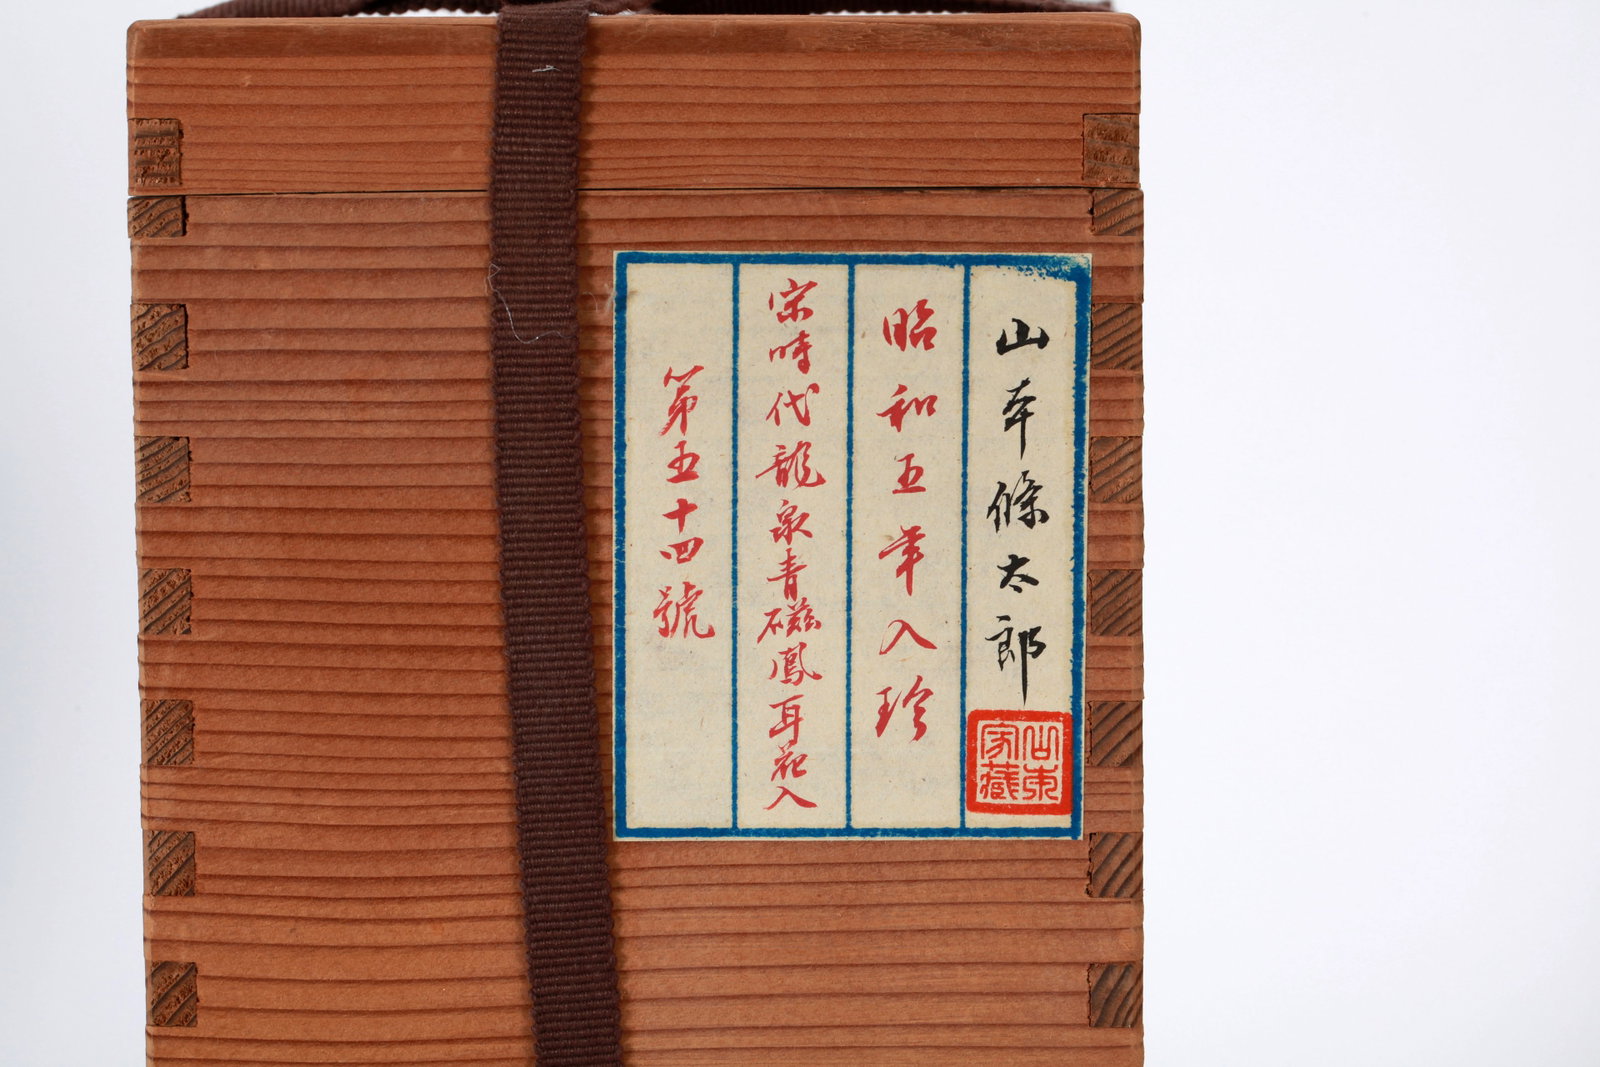 山本條太郎
昭和五年入珍
宋時代龍泉青磁鳳耳花入
第五十四號
家藏